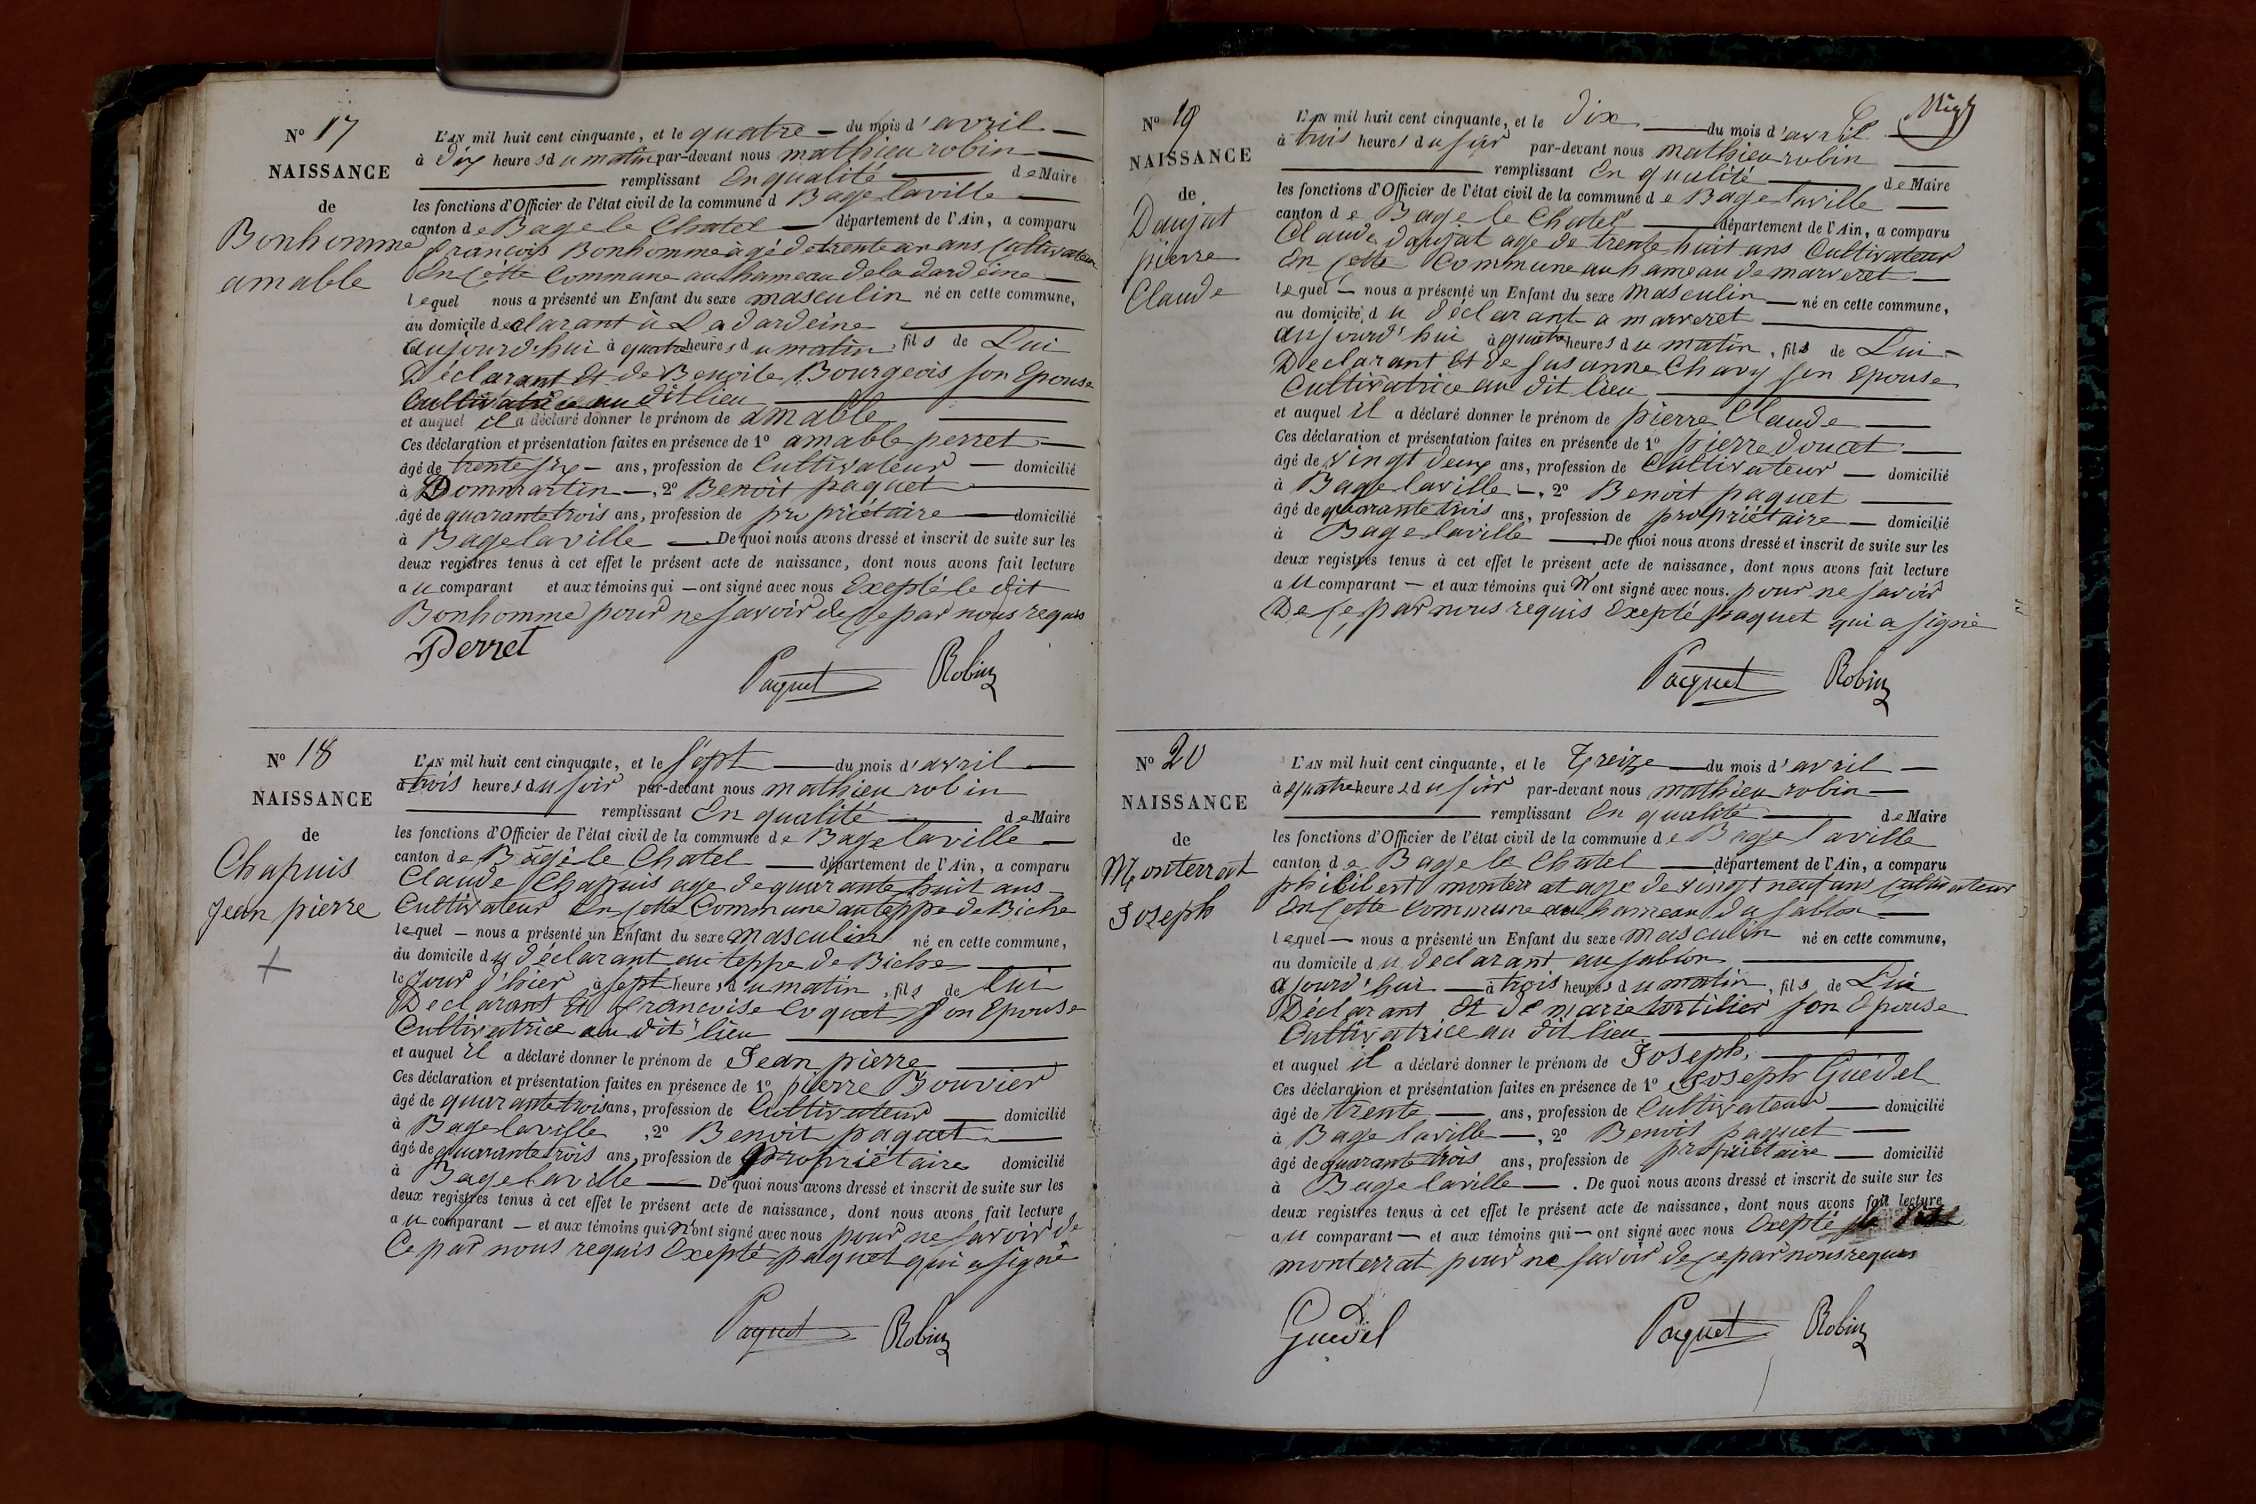 N° 17
NAISSANCE
de
Bonhomme
amable
L'AN mil huit cent cinquante, et le quatre du mois d'avril
à dix heures du matin par-devant nous mathieu robin
remplissant En qualité de Maire
les fonctions d'Officier de l'état civil de la commune d Bage laville
canton de Bage le Chatel département de l'Ain, a comparu
françois Bonhomme àgé de trente ans Cultivateur
En cette Commune au hameau de la dardeine
lequel nous a présenté un Enfant du sexe masculin né en cette commune,
au domicile declarant à La dardeine
aujourd'hui à quatre heures du matin, fils de Lui
Déclarant Et de Benoite Bourgeois son Epouse
Cultivatrice au dit lieu
et auquel il a déclaré donner le prénom de amable
Ces déclaration et présentation faites en présence de 1° amable perret
âgé de trente six ans, profession de Cultivateur domicilié
à Dommartin, 2° Benoit paquet
âgé de quarante trois ans, profession de propriétaire domicilié
à Bage laville De quoi nous avons dressé et inscrit de suite sur les
deux registres tenus à cet effet le présent acte de naissance, dont nous avons fait lecture
au comparant et aux témoins qui ont signé avec nous Exepté le dit
Bonhomme pour ne savoir de ce par nous requis
Perret
Paquet Robin
N° 18
NAISSANCE
de
Chapuis
Jean pierre
L'AN mil huit cent cinquante, et le sept du mois d'avril
à trois heures du soir par-devant nous mathieu robin
remplissant En qualité de Maire
les fonctions d'Officier de l'état civil de la commune de Bage laville
canton de Bâgé le Chatel département de l'Ain, a comparu
Claude Chapuis age de quarante huit ans
Cultivateur En cette Commune au teppe de Biche
lequel nous a présenté un Enfant du sexe masculin né en cette commune,
au domicile du déclarant au teppe de Biche
le jour d'hier à sept heures du matin, fils de lui
Déclarant Et francoise Coquet son Epouse
Cultivatrice au dit lieu
et auquel il a déclaré donner le prénom de Jean pierre
Ces déclaration et présentation faites en présence de 1° pierre Bouvier
âgé de quarante trois ans, profession de Cultivateur domicilié
à Bage laville, 2° Benoit paquet
âgé de quarante trois ans, profession de propriétaire domicilié
à Bage laville De quoi nous avons dressé et inscrit de suite sur les
deux registres tenus à cet effet le présent acte de naissance, dont nous avons fait lecture
au comparant et aux témoins qui n'ont signé avec nous pour ne savoir de
Ce par nous requis Exepté paquet qui a signé
Paquet Robin
N° 19
NAISSANCE
de
Daujat
pierre
Claude
L'AN mil huit cent cinquante, et le dix du mois d'avril
à trois heures du soir par-devant nous mathieu robin
remplissant En qualité de Maire
les fonctions d'Officier de l'état civil de la commune de Bage laville
canton de Bage le Chatel département de l'Ain, a comparu
Claude daujat age de trente huit ans Cultivateur
En cette Commune au hameau de marveret
lequel nous a présenté un Enfant du sexe Masculin né en cette commune,
au domicile du déclarant a marveret
aujourd'hui à quatre heures du matin, fils de Lui
Déclarant Et de susanne Chavy son Epouse
Cultivatrice au dit lieu
et auquel il a déclaré donner le prénom de pierre Claude
Ces déclaration et présentation faites en présence de 1° pierre doucet
âgé de vingt deux ans, profession de Cultivateur domicilié
à Bage laville, 2° Benoit paquet
âgé de quarante trois ans, profession de propriétaire domicilié
à Bage laville De quoi nous avons dressé et inscrit de suite sur les
deux registres tenus à cet effet le présent acte de naissance, dont nous avons fait lecture
au comparant et aux témoins qui n'ont signé avec nous. pour ne savoir
De ce par nous requis Exepté paquet qui a signé
Paquet Robin
N° 20
NAISSANCE
de
Monterrat
Joseph
L'AN mil huit cent cinquante, et le Treize du mois d'avril
à quatre heures du soir par-devant nous mathieu robin
remplissant En qualité de Maire
les fonctions d'Officier de l'état civil de la commune de Bage laville
canton de Bage le Chatel département de l'Ain, a comparu
philibert monterrat age de vingt neuf ans Cultivateur
En cette Commune au hameau du sablon
lequel nous a présenté un Enfant du sexe masculin né en cette commune,
au domicile du déclarant au sablon
ajourd'hui à trois heures du matin, fils de Lui
Déclarant Et de marie tortilier son Epouse
Cultivatrice au dit lieu
et auquel il a déclaré donner le prénom de Joseph.
Ces déclaration et présentation faites en présence de 1° Joseph Guédel
âgé de trente ans, profession de Cultivateur domicilié
à Bage laville, 2° Benoit paquet
âgé de quarante trois ans, profession de propriétaire domicilié
à Bage laville. De quoi nous avons dressé et inscrit de suite sur les
deux registres tenus à cet effet le présent acte de naissance, dont nous avons fait lecture
au comparant et aux témoins qui ont signé avec nous Exepté
monterrat pour ne savoir de ce par nous requis
Guedel
Paquet Robin